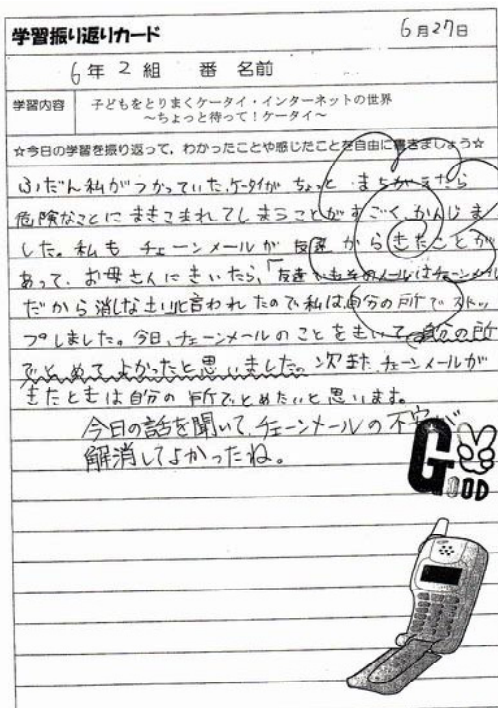 学習振り返りカード
6月27日
6年 2組 番 名前
学習内容
子どもをとりまくケータイ・インターネットの世界
~ちょっと待って!ケータイ~
☆今日の学習を振り返って,わかったことや感じたことを自由に書きましょう☆
ふだん私がつかっていた、ケータイが ちょっと まちがえたら
危険なことに まきこまれてしまうことがすごく、かんじま
した。私も チェーンメールが 友達 から きたことが
あって、お母さんに きいたら、「友達 でもそのメールはチェーンメール
だから 消しなさい」と言われたので 私は、自分の所で ストッ
プしました。今日、チェーンメールのことをきいて 自分の所
でとめて よかったと思いました。次また チェーンメールが
きたときは 自分の 所でとめたいと思います。
今日の話を聞いて、チェーンメールの不安が
解消してよかったね。
GOOD